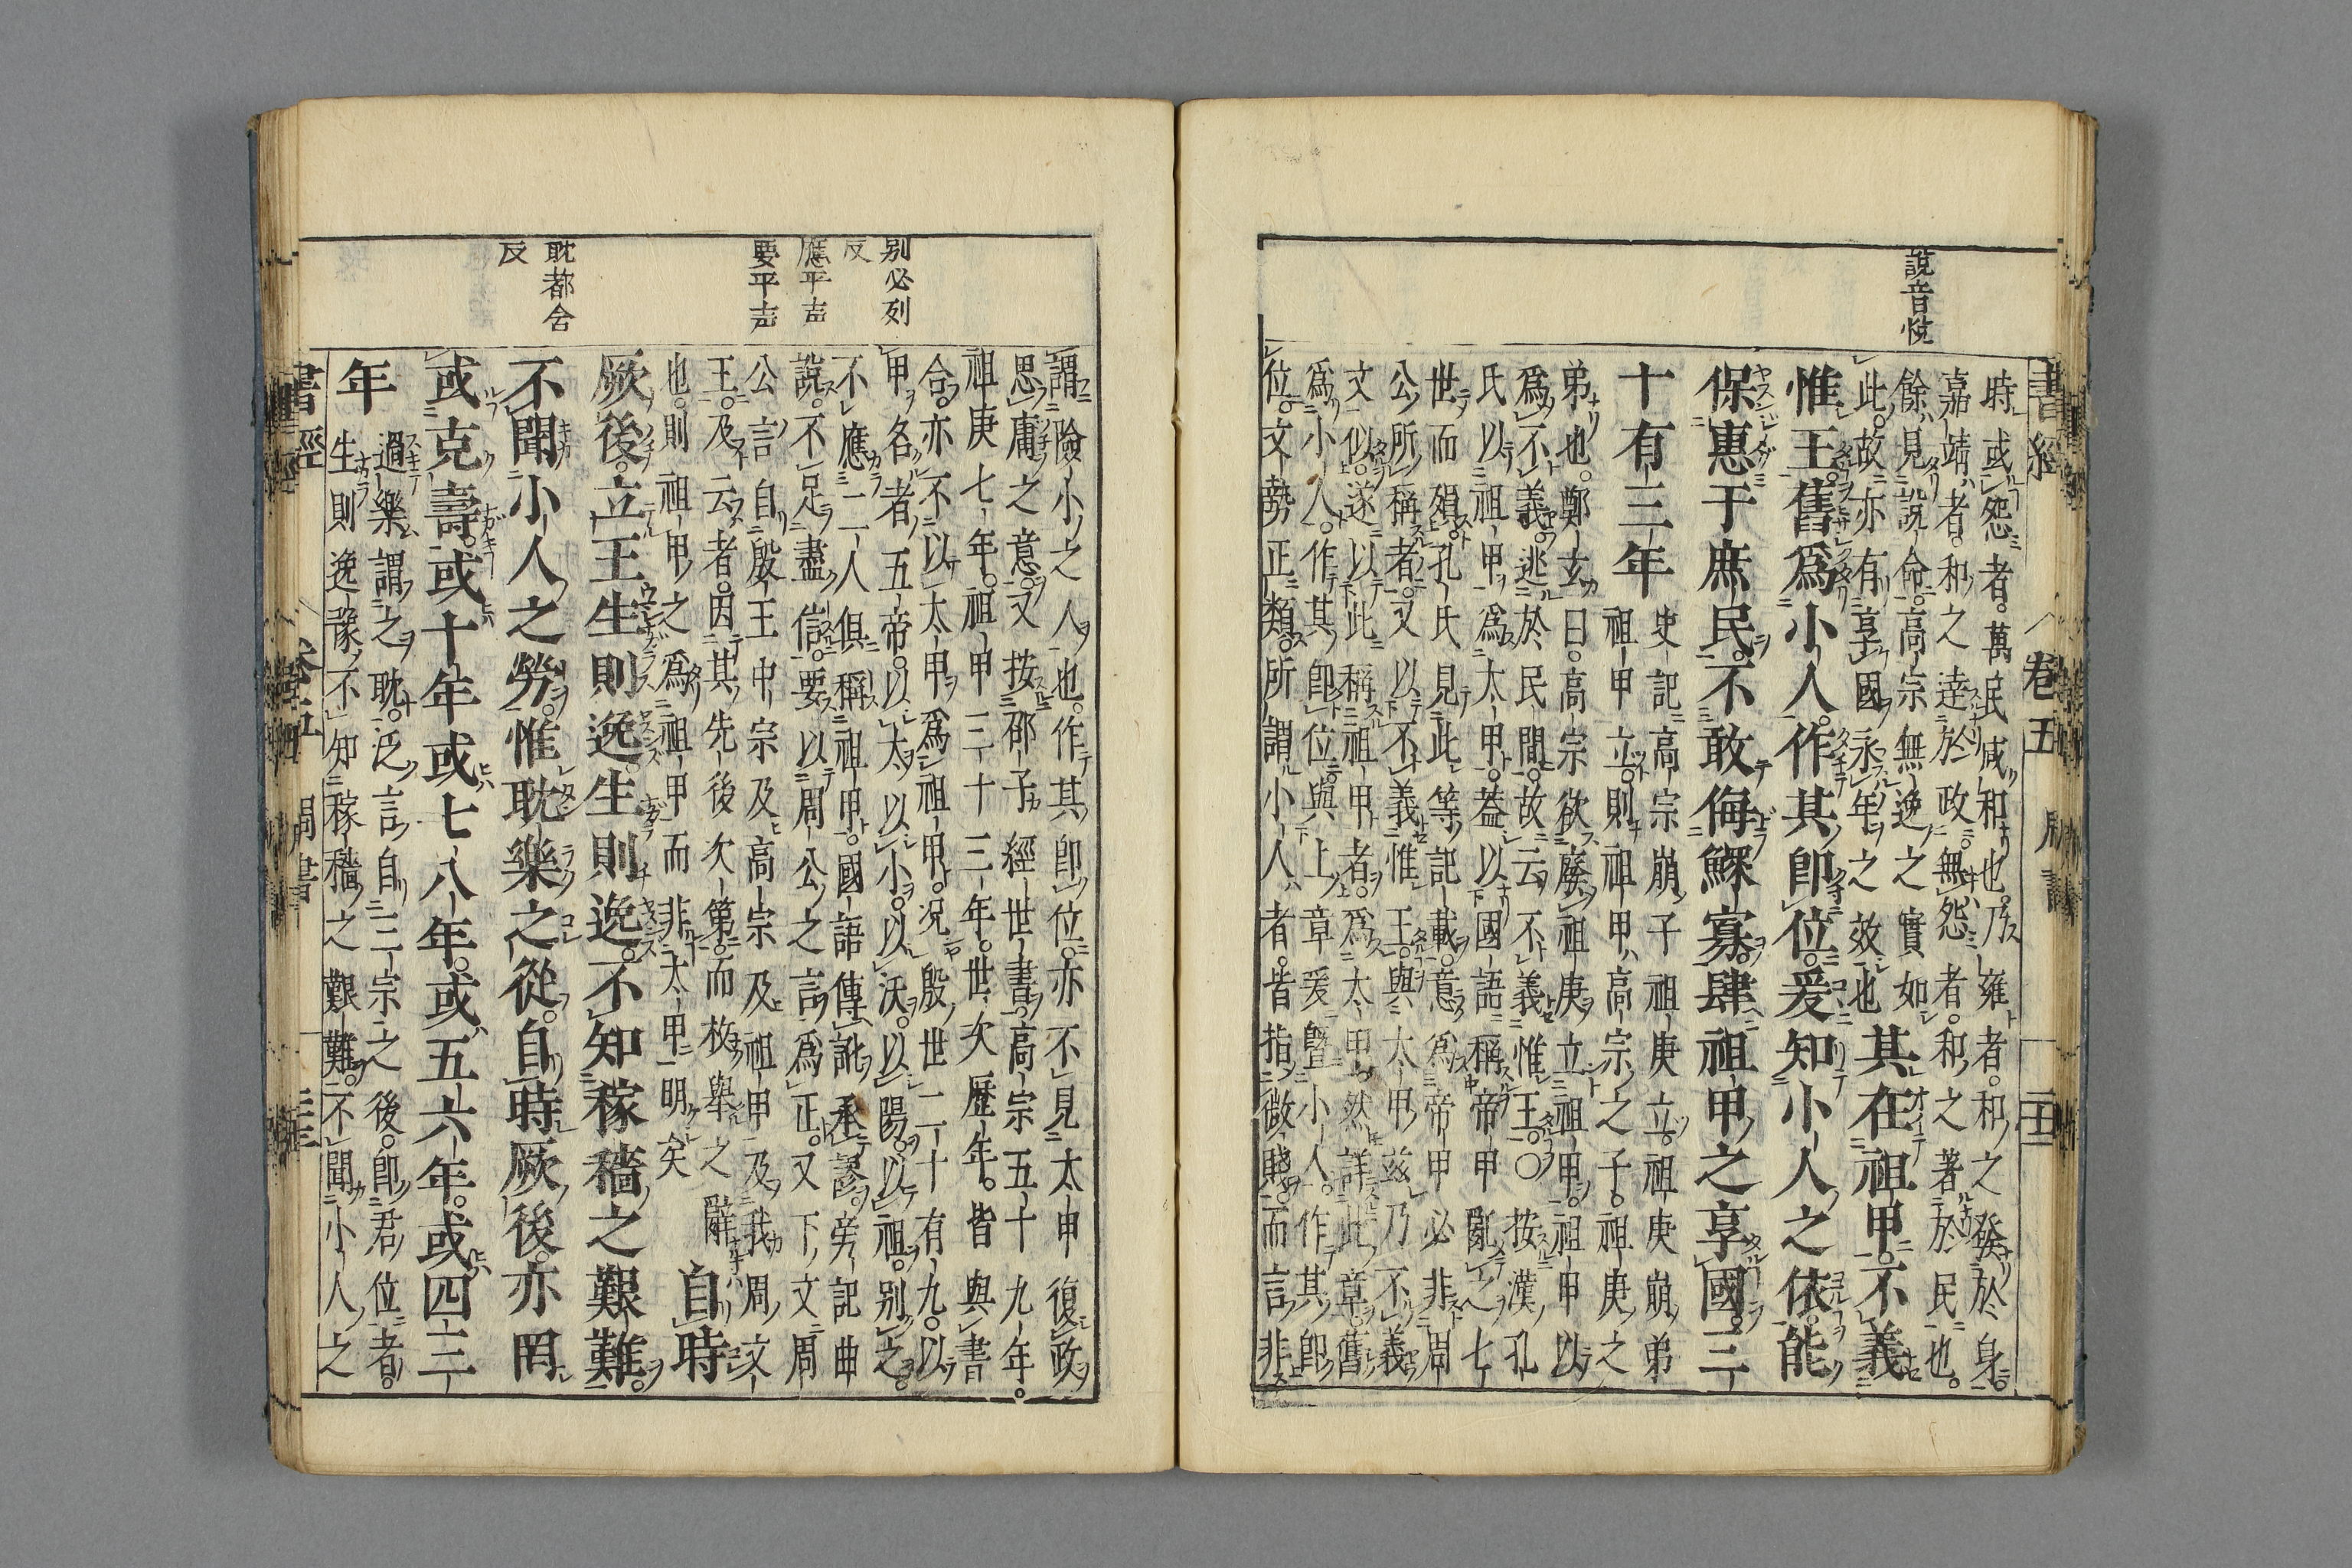 書經 卷五 周書 二十二
說音悅
時或怨者萬民咸和也乃雍者和之發於身
嘉靖者和之達於政無怨者和之著於民也
餘見說命高宗無逸之實如
此故亦有享國永年之效也
其在祖甲不義
惟王舊爲小人作其卽位爰知小人之依能
保惠于庶民不敢侮鰥寡肆祖甲之享國三
十有三年
史記高宗崩子祖庚立祖庚崩弟
祖甲立則祖甲高宗之子祖庚之
弟也鄭玄曰高宗欲廢祖庚立祖甲祖甲以
爲不義逃於民間故云不義惟王○按漢孔
氏以祖甲爲太甲蓋以國語稱帝甲亂之七
世而殞孔氏見此等記載意爲帝甲必非周
公所稱者又以不義惟王與太甲茲乃不義
文似遂以此稱祖甲者爲太甲然詳此章舊
爲小人作其卽位與上章爰曁小人作其卽
位文勢正類所謂小人者皆指微賤而言非
謂險小之人也作其卽位亦不見太甲復政
思庸之意又按邵子經世書高宗五十九年
祖庚七年祖甲三十三年世次歷年皆與書
合亦不以太甲爲祖甲况殷世二十有九以
甲名者五帝以太以小以沃以陽以祖別之
不應二人俱稱祖甲國語傳訛承謬旁記曲
說不足盡信要以周公之言爲正又下文周
公言自殷王中宗及高宗及祖甲及我周文
王及云者因其先後次第而枚舉之辭
也則祖甲之爲祖甲而非太甲明矣
自時
厥後立王生則逸生則逸不知稼穡之艱難
不聞小人之勞惟耽樂之從自時厥後亦罔
或克壽或十年或七八年或五六年或四三
年
過樂謂之耽泛言自三宗之後卽君位者
生則逸豫不知稼穡之艱難不聞小人之
別必列
反
應平声
要平声
耽都含
反
書經 卷五 周書